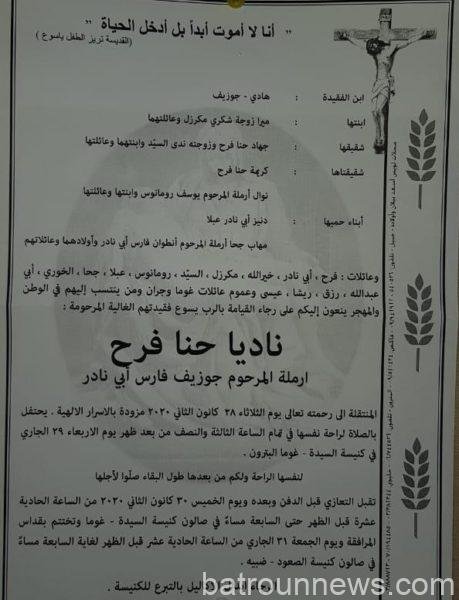 " أنا لا أموت أبداً بل أدخل الحياة "
(القديسة تريز الطفل يسوع)
ابن الفقيدة : هادي - جوزيف
ابنتها : ميرا زوجة شكري مكرزل وعائلتهما
شقيقها : جهاد حنا فرح وزوجته ندى السيّد وابنتهما وعائلتها
شقيقتاها : كريمة حنا فرح
نوال أرملة المرحوم يوسف رومانوس وابنتها وعائلتها
أبناء حميها : دنيز أبي نادر عبلا
مهاب جحا أرملة المرحوم أنطوان فارس أبي نادر وأولادهما وعائلاتهم
وعائلات : فرح ، أبي نادر ، خيرالله ، مكرزل ، السيّد ، رومانوس ، عبلا ، جحا ، الخوري ، أبي
عبدالله ، رزق ، ريشا ، عيسى وعموم عائلات غوما وجران ومن ينتسب إليهم في الوطن
والمهجر ينعون إليكم على رجاء القيامة بالرب يسوع فقيدتهم الغالية المرحومة :
ناديا حنا فرح
ارملة المرحوم جوزيف فارس أبي نادر
المنتقلة الى رحمته تعالى يوم الثلاثاء ٢٨ كانون الثاني ٢٠٢٠ مزودة بالاسرار الالهية . يحتفل
بالصلاة لراحة نفسها في تمام الساعة الثالثة والنصف من بعد ظهر يوم الاربعاء ٢٩ الجاري
في كنيسة السيدة - غوما البترون .
لنفسها الراحة ولكم من بعدها طول البقاء صلّوا لأجلها
تقبل التعازي قبل الدفن وبعده ويوم الخميس ٣٠ كانون الثاني ٢٠٢٠ من الساعة الحادية
عشرة قبل الظهر حتى السابعة مساءً في صالون كنيسة السيدة - غوما وتختتم بقداس
المرافقة ويوم الجمعة ٣١ الجاري من الساعة الحادية عشر قبل الظهر لغاية السابعة مساءً في
صالون كنيسة الصعود - ضبيه .
الرجاء إبدال الأكاليل بالتبرع للكنيسة .
batrounnews.com